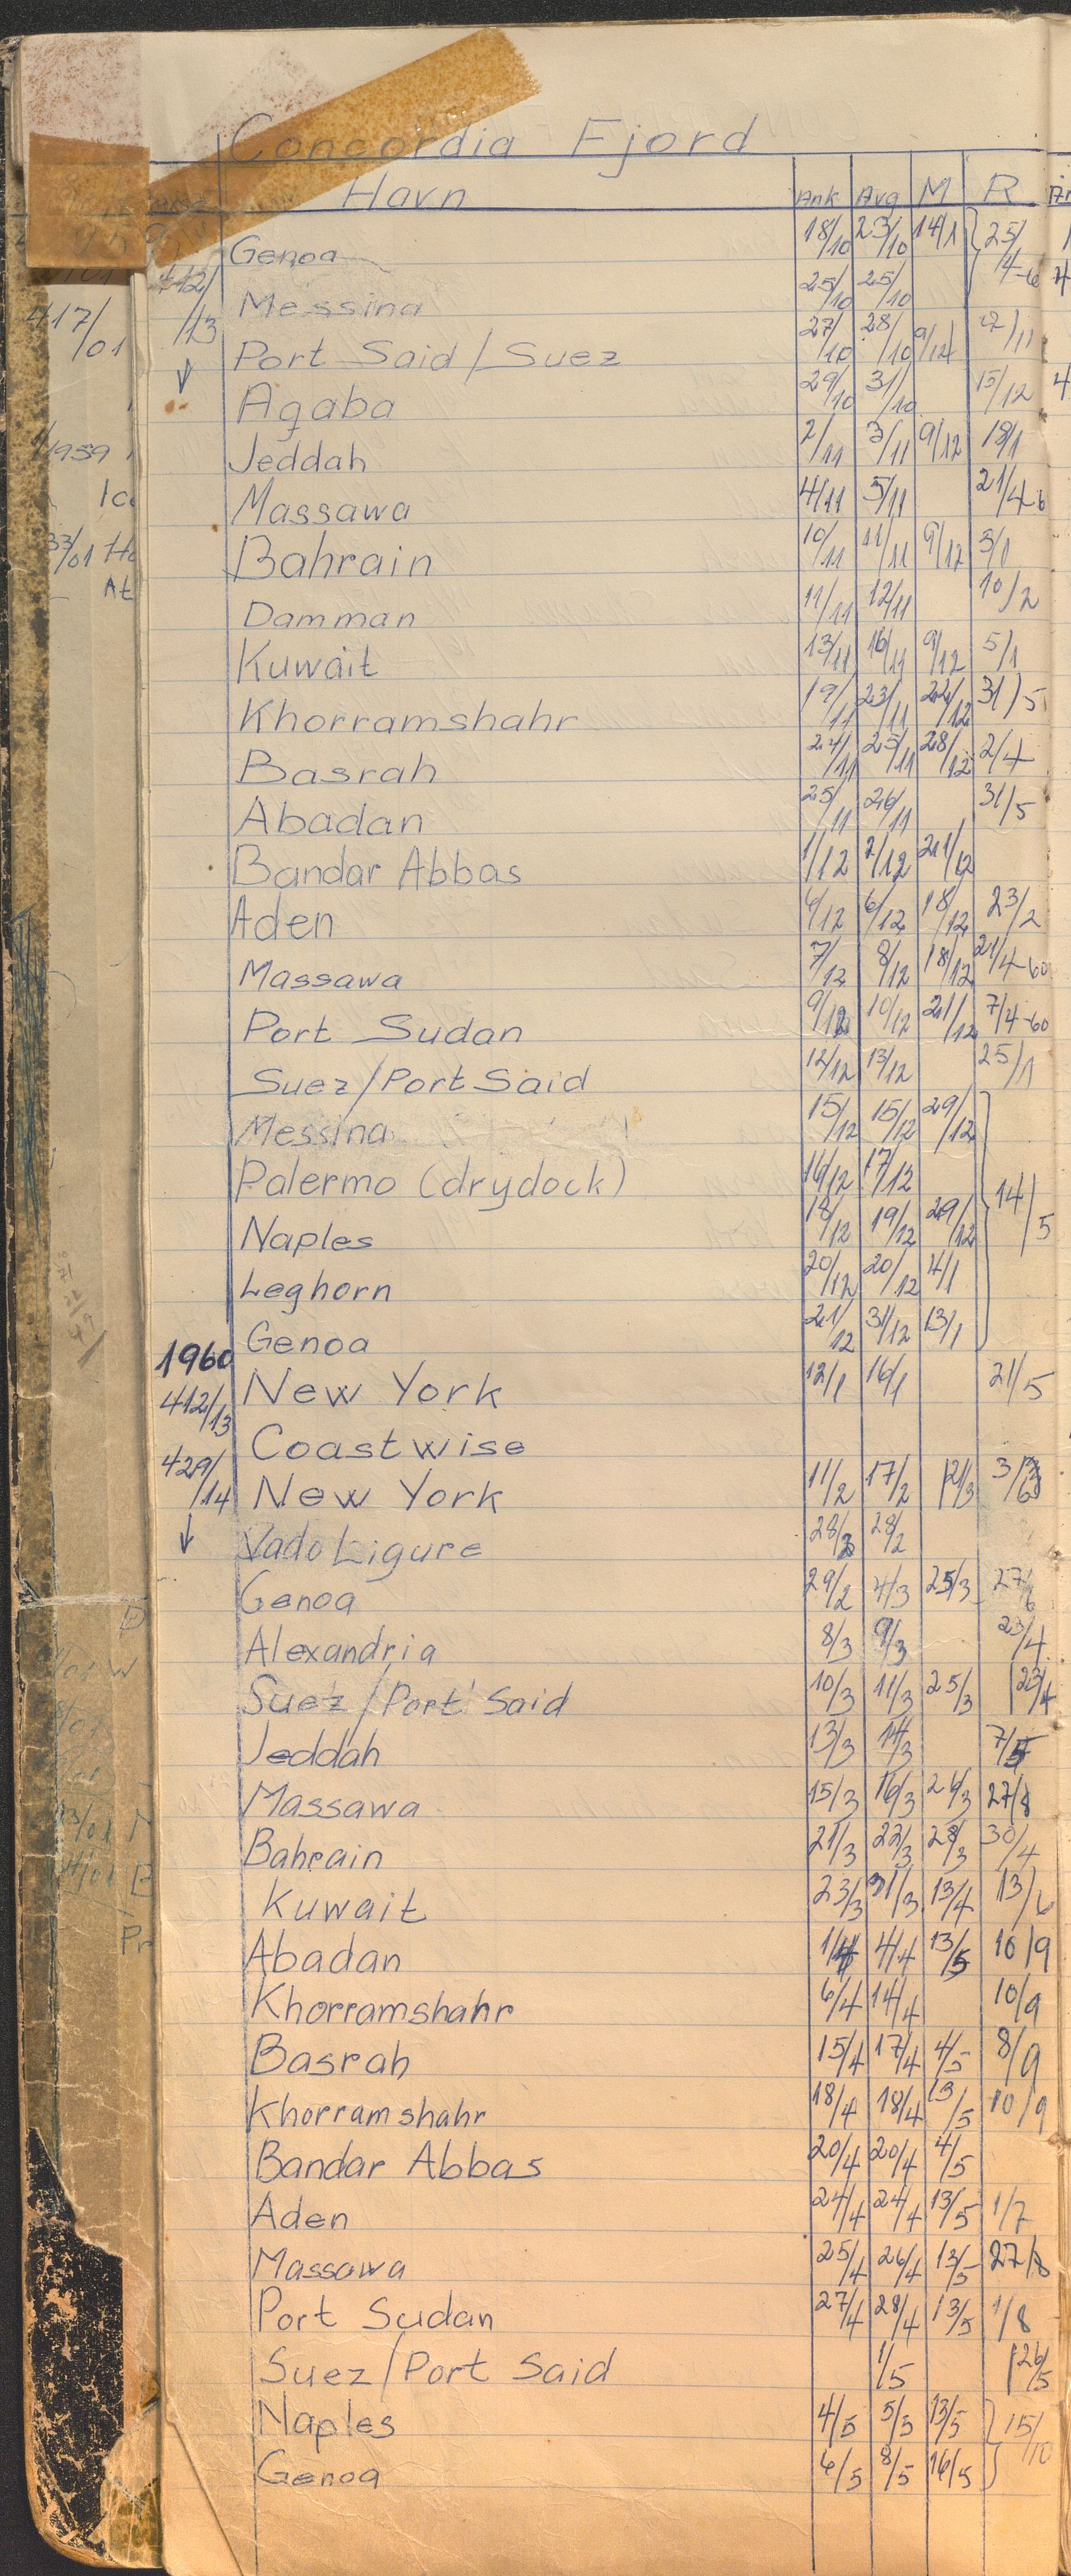 Concordia Fjord
Havn Ank Avg M R
Genoa 18/10 23/10 14/1 25/
14-6
412/13 Messina 25/10 25/10
417/01 Port Said/Suez 27/10 28/10 9/12 /11
Agaba 29/10 31/10 15/12
1959 Jeddah 2/11 3/11 9/12 19/1
Massawa 4/11 5/11 21/4-6
33/01 Bahrain 10/11 11/11 9/12 5/1
Damman 11/11 12/11 10/2
Kuwait 13/11 16/11 9/12 5/1
Khorramshahr 19/11 23/11 22/12 31/5
Basrah 24/11 25/11 28/12 2/4
Abadan 25/11 26/11 31/5
Bandar Abbas 1/12 2/12 21/12
Aden 6/12 6/12 18/12 23/2
Massawa 7/12 8/12 18/12 21/4-60
Port Sudan 9/12 10/12 21/12 7/4-60
Suez/Port Said 12/12 13/12 25/1
Messina 15/12 15/12 29/12
Palermo (drydock) 16/12 17/12 14/5
Naples 18/12 19/12 29/12
Leghorn 20/12 20/12 4/1
Genoa 21/12 31/12 13/1
1960
412/13 New York 12/1 16/1 21/5
Coastwise
429/14 New York 11/2 17/2 21/3
Vado Ligure 28/2 28/2
Genoa 29/2 4/3 25/3 27/6
Alexandria 8/3 9/3 23/4
Suez/Port Said 10/3 11/3 25/3 23/4
Jeddah 13/3 14/3 7/5
Massawa 15/3 16/3 26/3 27/8
Bahrain 21/3 22/3 28/3 30/4
Kuwait 23/3 31/3 13/4 13/6
Abadan 1/4 4/4 13/5 10/9
Khorramshahr 6/4 14/4 10/9
Basrah 15/4 17/4 4/5 8/9
Khorramshahr 18/4 18/4 13/5 10/9
Bandar Abbas 20/4 20/4 4/5
Aden 24/4 24/4 13/5 1/7
Massawa 25/4 26/4 13/5 27/8
Port Sudan 27/4 28/4 13/5 1/8
Suez/Port Said 1/5 26/5
Naples 4/5 5/5 13/5 15/10
Genoa 6/5 8/5 16/5